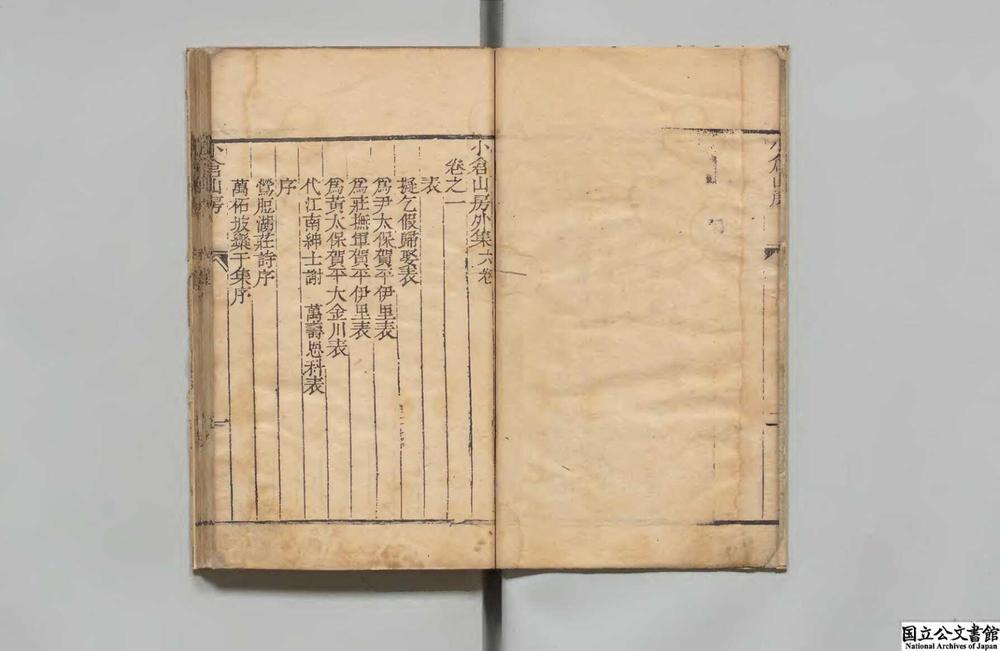 小倉山房外集 六卷
卷之一
表
擬乞假歸娶表
爲尹太保賀平伊里表
爲莊撫軍賀平伊里表
爲黃太保賀平大金川表
代江南紳士謝 萬壽恩科表
序
鶯脰湖莊詩序
萬柘坡藥于集序
小倉山房
国立公文書館
National Archives of Japan